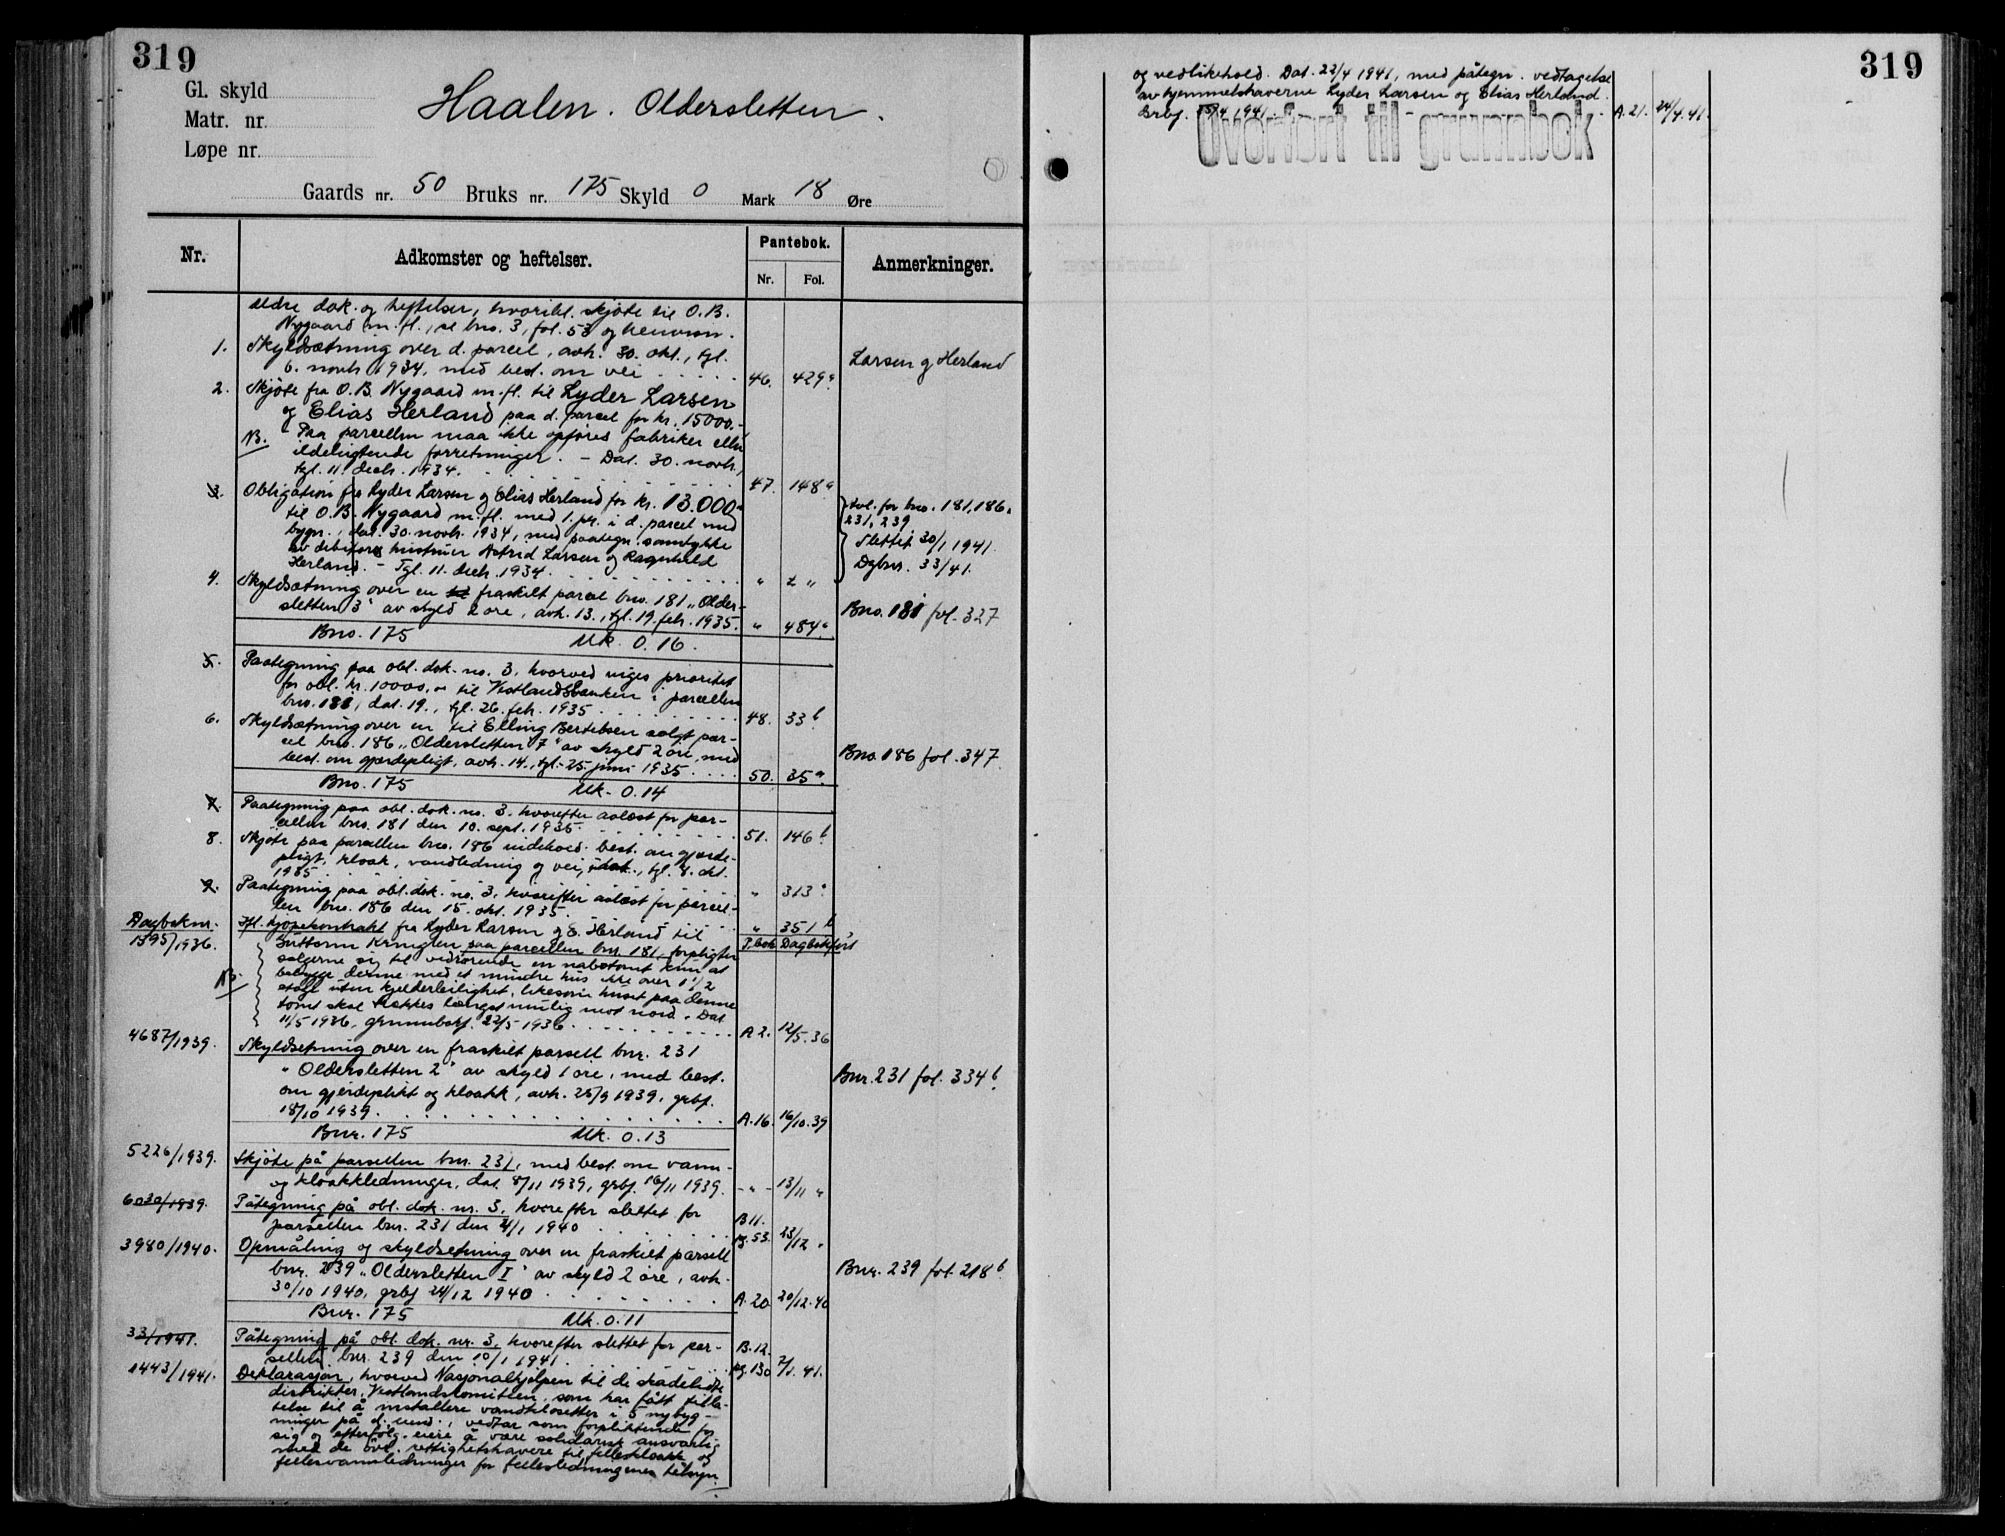 319
Gl. skyld
Matr. nr.
Løpe nr.
Haalen. Oldersletten.
Gaards nr. 50 Bruks nr. 175 Skyld 0 Mark 18 Øre
Nr. Adkomster og heftelser. Pantebok. Anmerkninger.
Nr. Fol.
Ældre dok. og heftelser, hvoribl. skjøte til O.B.
Nygaard m.fl., se bno. 3, fol. 53 og henvisn.
1. Skyldsætning over d. parcel, avh. 30. okt., tgl. Larsen og Herland
6. novbr. 1934, med best. om vei . . . . . 46. 429a
2. Skjøte fra O.B. Nygaard m.fl. til Lyder Larsen
og Elias Herland paa d. parcel for kr. 15000.-
NB. Paa parcellen maa ikke opføres fabriker eller
ildelugtende forretninger. - Dat. 30. novbr.,
tgl. 11. decbr. 1934. 47. 148a
3. Obligation fra Lyder Larsen og Elias Herland for kr. 13.000.-
til O.B. Nygaard m.fl. med 1. pr. i d. parcel med
bygn., dat. 30. novbr. 1934, med paategn. samtykke
av debitorers hustruer Astrid Larsen og Ragnhild
Herland. - Tgl. 11. decbr. 1934. " "
Kvl. for bno. 181, 186,
231, 239
Slettet 30/1 1941.
Dgbnr. 33/41.
4. Skyldsætning over en fraskilt parcel bno. 181 "Older-
sletten 3" av skyld 2 øre, avh. 13., tgl. 19. febr. 1935. " 484a Bno. 181 fol. 327
Bno. 175 Mk. 0.16.
5. Paategning paa obl. dok. no. 3, hvorved viges prioritet
for obl. kr. 10000.- til Vestlandsbanken i parcellen
bno. 181, dat. 19., tgl. 26. febr. 1935 . . . . 48. 33b
6. Skyldsætning over en til Elling Bertelsen solgt par-
cel bno. 186 "Oldersletten 7" av skyld 2 øre, med
best. om gjerdepligt, avh. 14., tgl. 25. juni 1935 . . . . 50. 35a Bno. 186 fol. 347
Bno. 175 Mk. 0.14
7. Paategning paa obl. dok. no. 3, hvorefter avløst for par-
cellen bno. 181 den 10. sept. 1935. 51. 146b
8. Skjøte paa parcellen bno. 186 indehold. best. om gjerde-
pligt, kloak, vandledning og vei, dat., tgl. 8. okt.
1935 . . . . " 313a
9. Paategning paa obl. dok. no. 3, hvorefter avløst for parcel-
len bno. 186 den 15. okt. 1935. " 351b
Dagboknr. P.bok Dagbokført
1395/1936. Ifl. kjøpekontrakt fra Lyder Larsen og E. Herland til
Guttorm Kringlen paa parcellen bnr. 181, forpligter
sælgerne sig til vedrørende en nabotomt kun at
NB. bebygge denne med et mindre hus ikke over 1 1/2
etage uten kjelderleilighet, likesom huset paa denne
tomt skal trækkes længst mulig mot nord. - Dat.
11/5 1936, grunnbokf. 22/5 1936 . . . . A 2. 12/5.36
4687/1939. Skyldsetning over en fraskilt parsell bnr. 231
"Oldersletten 2" av skyld 1 øre, med best. Bnr. 231 fol. 334b
om gjerdeplikt og kloakk, avh. 25/9 1939, grbf.
18/10 1939 . . . . A.16. 16/10.39
Bnr. 175 Mk. 0.13
5226/1939. Skjøte på parsellen bnr. 231, med best. om vann-
og kloakkledninger, dat. 8/11 1939, grbf. 16/11 1939. - " - 13/11 "
6030/1939. Påtegning på obl. dok. nr. 3, hvorefter slettet for
parsellen bnr. 231 den 4/1 1940 B 11. pg. 53. 23/12 "
3980/1940. Opmåling og skyldsetning over en fraskilt parsell
bnr. 239 "Oldersletten I" av skyld 2 øre, avh. Bnr. 239 fol. 218b
30/10 1940, grbf. 24/12 1940 . . . . A.20. 20/12.40
Bnr. 175 Mk. 0.11
33/1941. Påtegning på obl. dok. nr. 3, hvorefter slettet for par-
sellen bnr. 239 den 10/1 1941. B.12. pg. 130 7/1.41.
1443/1941. Deklarasjon, hvorved Nasjonalhjelpen til de skadelidte
distrikter, Vestlandskomiteen, som har fått tilla-
telse til å installere vandklosetter i 5 nybyg-
ninger på d. eiend., vedtar som forpliktende for
sig og efterfølg. eiere å være solidarisk ansvarlig
med de øvr. rettighetshavere til felleskloakk og
fellesvannledninger for fellesledningenes tilsyn
319
og vedlikehold. Dat. 22/4 1941, med påtegn. vedtagelse
av hjemmelshaverne Lyder Larsen og Elias Herland.
Grbf. 25/4 1941. A.21. 24/4.41.
Overført til grunnbok